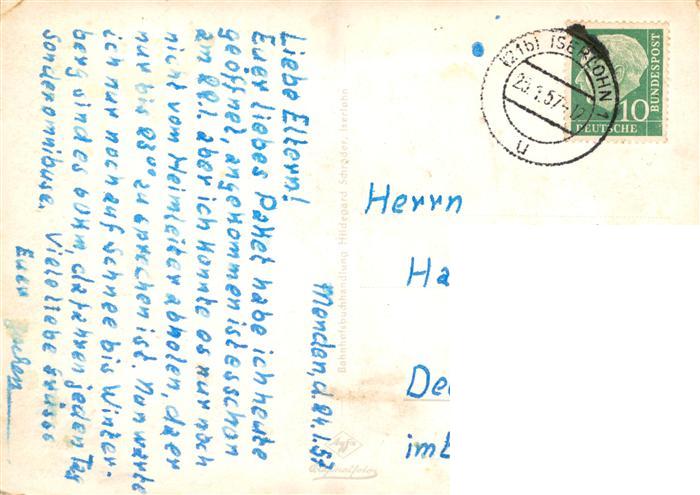 Menden, d. 24.1.57
Liebe Eltern!
Euer liebes Paket habe ich heute
geöffnet, angekommen ist es schon
am 22.1. aber ich konnte es nur noch
nicht vom Heimleiter abholen, da er
nur bis 23⁰⁰ zu sprechen ist. Nun warte
ich nur noch auf Schnee bis Winter-
berg sind es 60km, da fahren jeden Tag
Sonderomnibusse. Viele liebe Grüsse
Euer Jochen
Bahnhofsbuchhandlung Hildegard Schröder, Iserlohn
Agfa
Originalfoto
(21b) ISERLOHN 1
25.1.57-12
u
10
DEUTSCHE
BUNDESPOST
Herrn
Ha
De
im